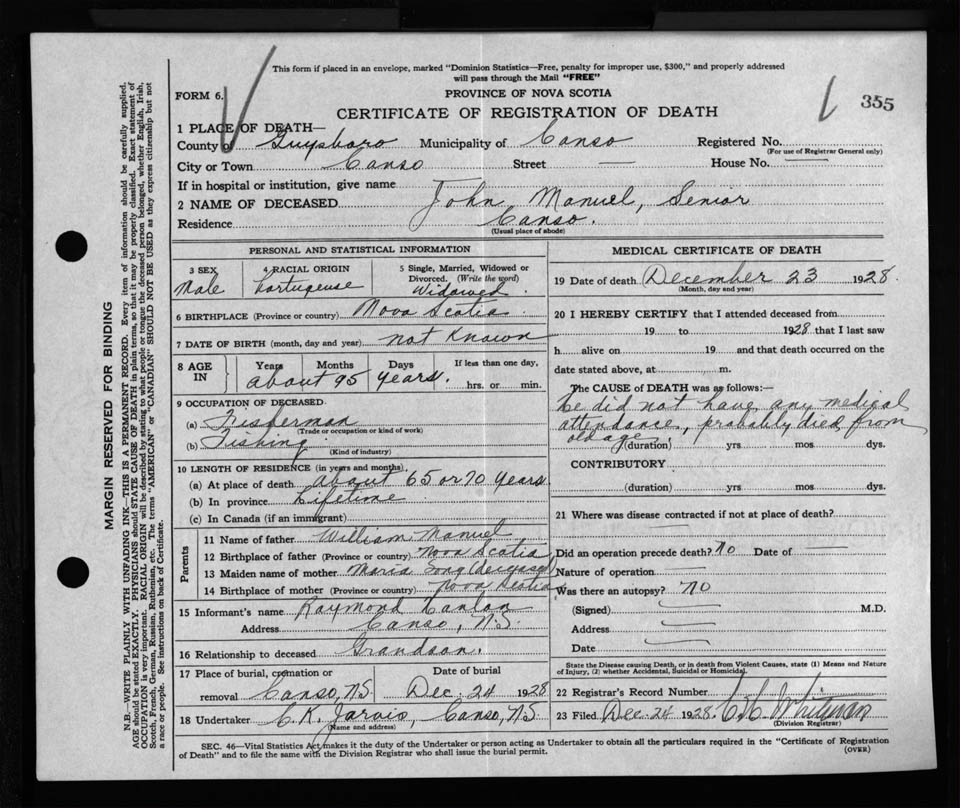 This form if placed in an envelope, marked "Dominion Statistics—Free, penalty for improper use, $300," and properly addressed
will pass through the Mail "FREE"
FORM 6.
PROVINCE OF NOVA SCOTIA
CERTIFICATE OF REGISTRATION OF DEATH
355
1 PLACE OF DEATH—
County of Guysboro Municipality of Canso Registered No.
(For use of Registrar General only)
City or Town Canso Street — House No. —
If in hospital or institution, give name
2 NAME OF DECEASED John Manuel, Senior
Residence Canso.
(Usual place of abode)
PERSONAL AND STATISTICAL INFORMATION
3 SEX Male
4 RACIAL ORIGIN Portuguese
5 Single, Married, Widowed or Divorced. (Write the word) Widowed
6 BIRTHPLACE (Province or country) Nova Scotia
7 DATE OF BIRTH (month, day and year) not Known
8 AGE IN Years Months Days If less than one day,
about 95 years. hrs. or min.
9 OCCUPATION OF DECEASED
(a) Fisherman
(Trade or occupation or kind of work)
(b) Fishing
(Kind of industry)
10 LENGTH OF RESIDENCE (in years and months)
(a) At place of death about 65 or 70 years
(b) In province Lifetime
(c) In Canada (if an immigrant)
Parents
11 Name of father William Manuel
12 Birthplace of father (Province or country) Nova Scotia
13 Maiden name of mother Maria Long (deceased)
14 Birthplace of mother (Province or country) Nova Scotia
15 Informant's name Raymond
Address Canso, N.S.
16 Relationship to deceased Grandson.
17 Place of burial, cremation or Date of burial
removal Canso, N.S. Dec. 24 1928
18 Undertaker C.K. Jarvis, Canso, N.S.
(Name and address)
MEDICAL CERTIFICATE OF DEATH
19 Date of death December 23 1928
(Month, day and year)
20 I HEREBY CERTIFY that I attended deceased from
19 to 1928 that I last saw
h alive on 19 and that death occurred on the
date stated above, at m.
The CAUSE of DEATH was as follows:—
he did not have any medical
attendance, probably died from
old age,
(duration) yrs mos dys.
CONTRIBUTORY
(duration) yrs mos dys.
21 Where was disease contracted if not at place of death?
—
Did an operation precede death? no Date of —
Nature of operation —
Was there an autopsy? no
(Signed) — M.D.
Address —
Date —
State the Disease causing Death, or in death from Violent Causes, state (1) Means and Nature
of Injury, (2) whether Accidental, Suicidal or Homicidal
22 Registrar's Record Number
23 Filed Dec 24 1928 Whitman
(Division Registrar)
SEC. 46—Vital Statistics Act makes it the duty of the Undertaker or person acting as Undertaker to obtain all the particulars required in the "Certificate of Registration
of Death" and to file the same with the Division Registrar who shall issue the burial permit.
(OVER)
MARGIN RESERVED FOR BINDING
N.B.—WRITE PLAINLY WITH UNFADING INK—THIS IS A PERMANENT RECORD. Every item of information should be carefully supplied.
AGE should be stated EXACTLY. PHYSICIANS should STATE CAUSE OF DEATH in plain terms, so that it may be properly classified. Exact statement of
OCCUPATION is very important. RACIAL ORIGIN will be described by stating to what people or tongue the deceased person belonged, whether English, Irish,
Scotch, French, German, Russian, Ruthenian, etc. The terms "AMERICAN" or "CANADIAN" SHOULD NOT BE USED as they express citizenship but not
a race or people. See instructions on back of Certificate.